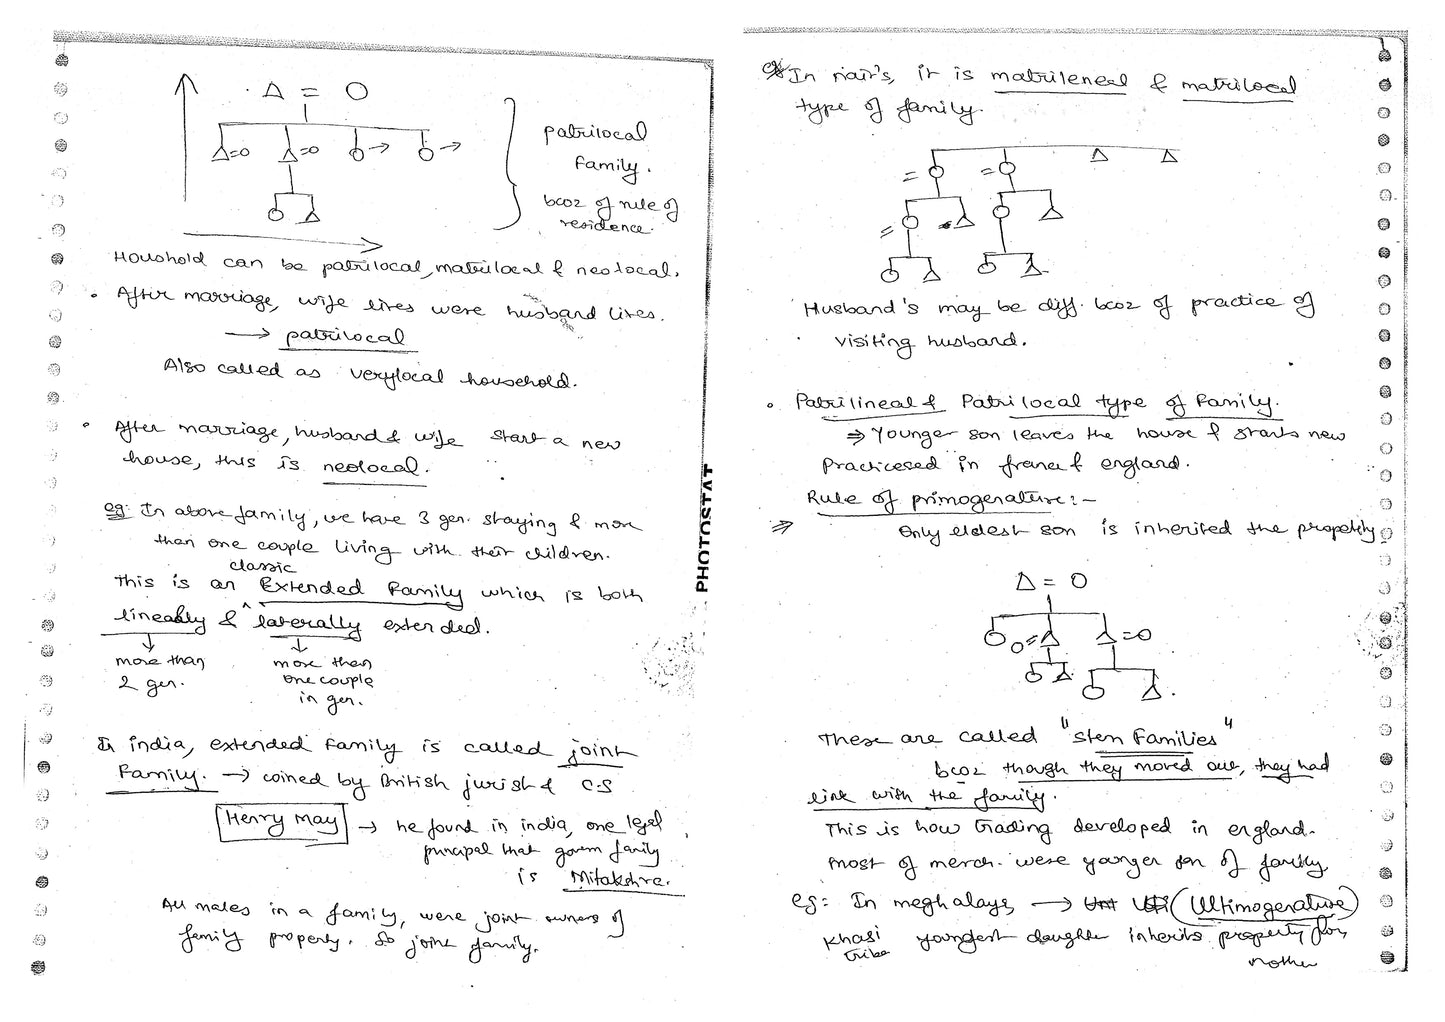 patrilocal
family.
bcoz of rule of
residence.
Houshold can be patrilocal, matrilocal & neolocal.
• After marriage, wife lives were husband lives.
→ patrilocal
Also called as verylocal household.
• After marriage, husband & wife start a new
house, this is neolocal.
eg: In above family, we have 3 gen. staying & more
than one couple living with their children.
classic
This is an Extended Family which is both
lineably & laterally extended.
more than
2 gen.
more than
one couple
in gen.
In india, extended family is called joint
Family. → coined by British jurist & C.S
Henry May → he found in india, one legal
principal that govern family
is Mitakshre.
All males in a family, were joint owners of
family property. So joint family.
PHOTOSTAT
eg In nair's, it is matrileneal & matrilocal
type of family.
Husband's may be diff. bcoz of practice of
visiting husband.
• Patrilineal & Patrilocal type of Family.
⇒ Younger son leaves the house & starts new
Practicesed in france & england.
Rule of primogenature:-
⇒ Only eldest son is inherited the propeltly
These are called "Stem Families"
bcoz though they moved out, they had
link with the family.
This is how trading developed in england.
most of merch. were younger son of family.
eg: In meghalays, → (Ultimogenature)
Khasi
tribe
youngest daughter inherits property from
mother